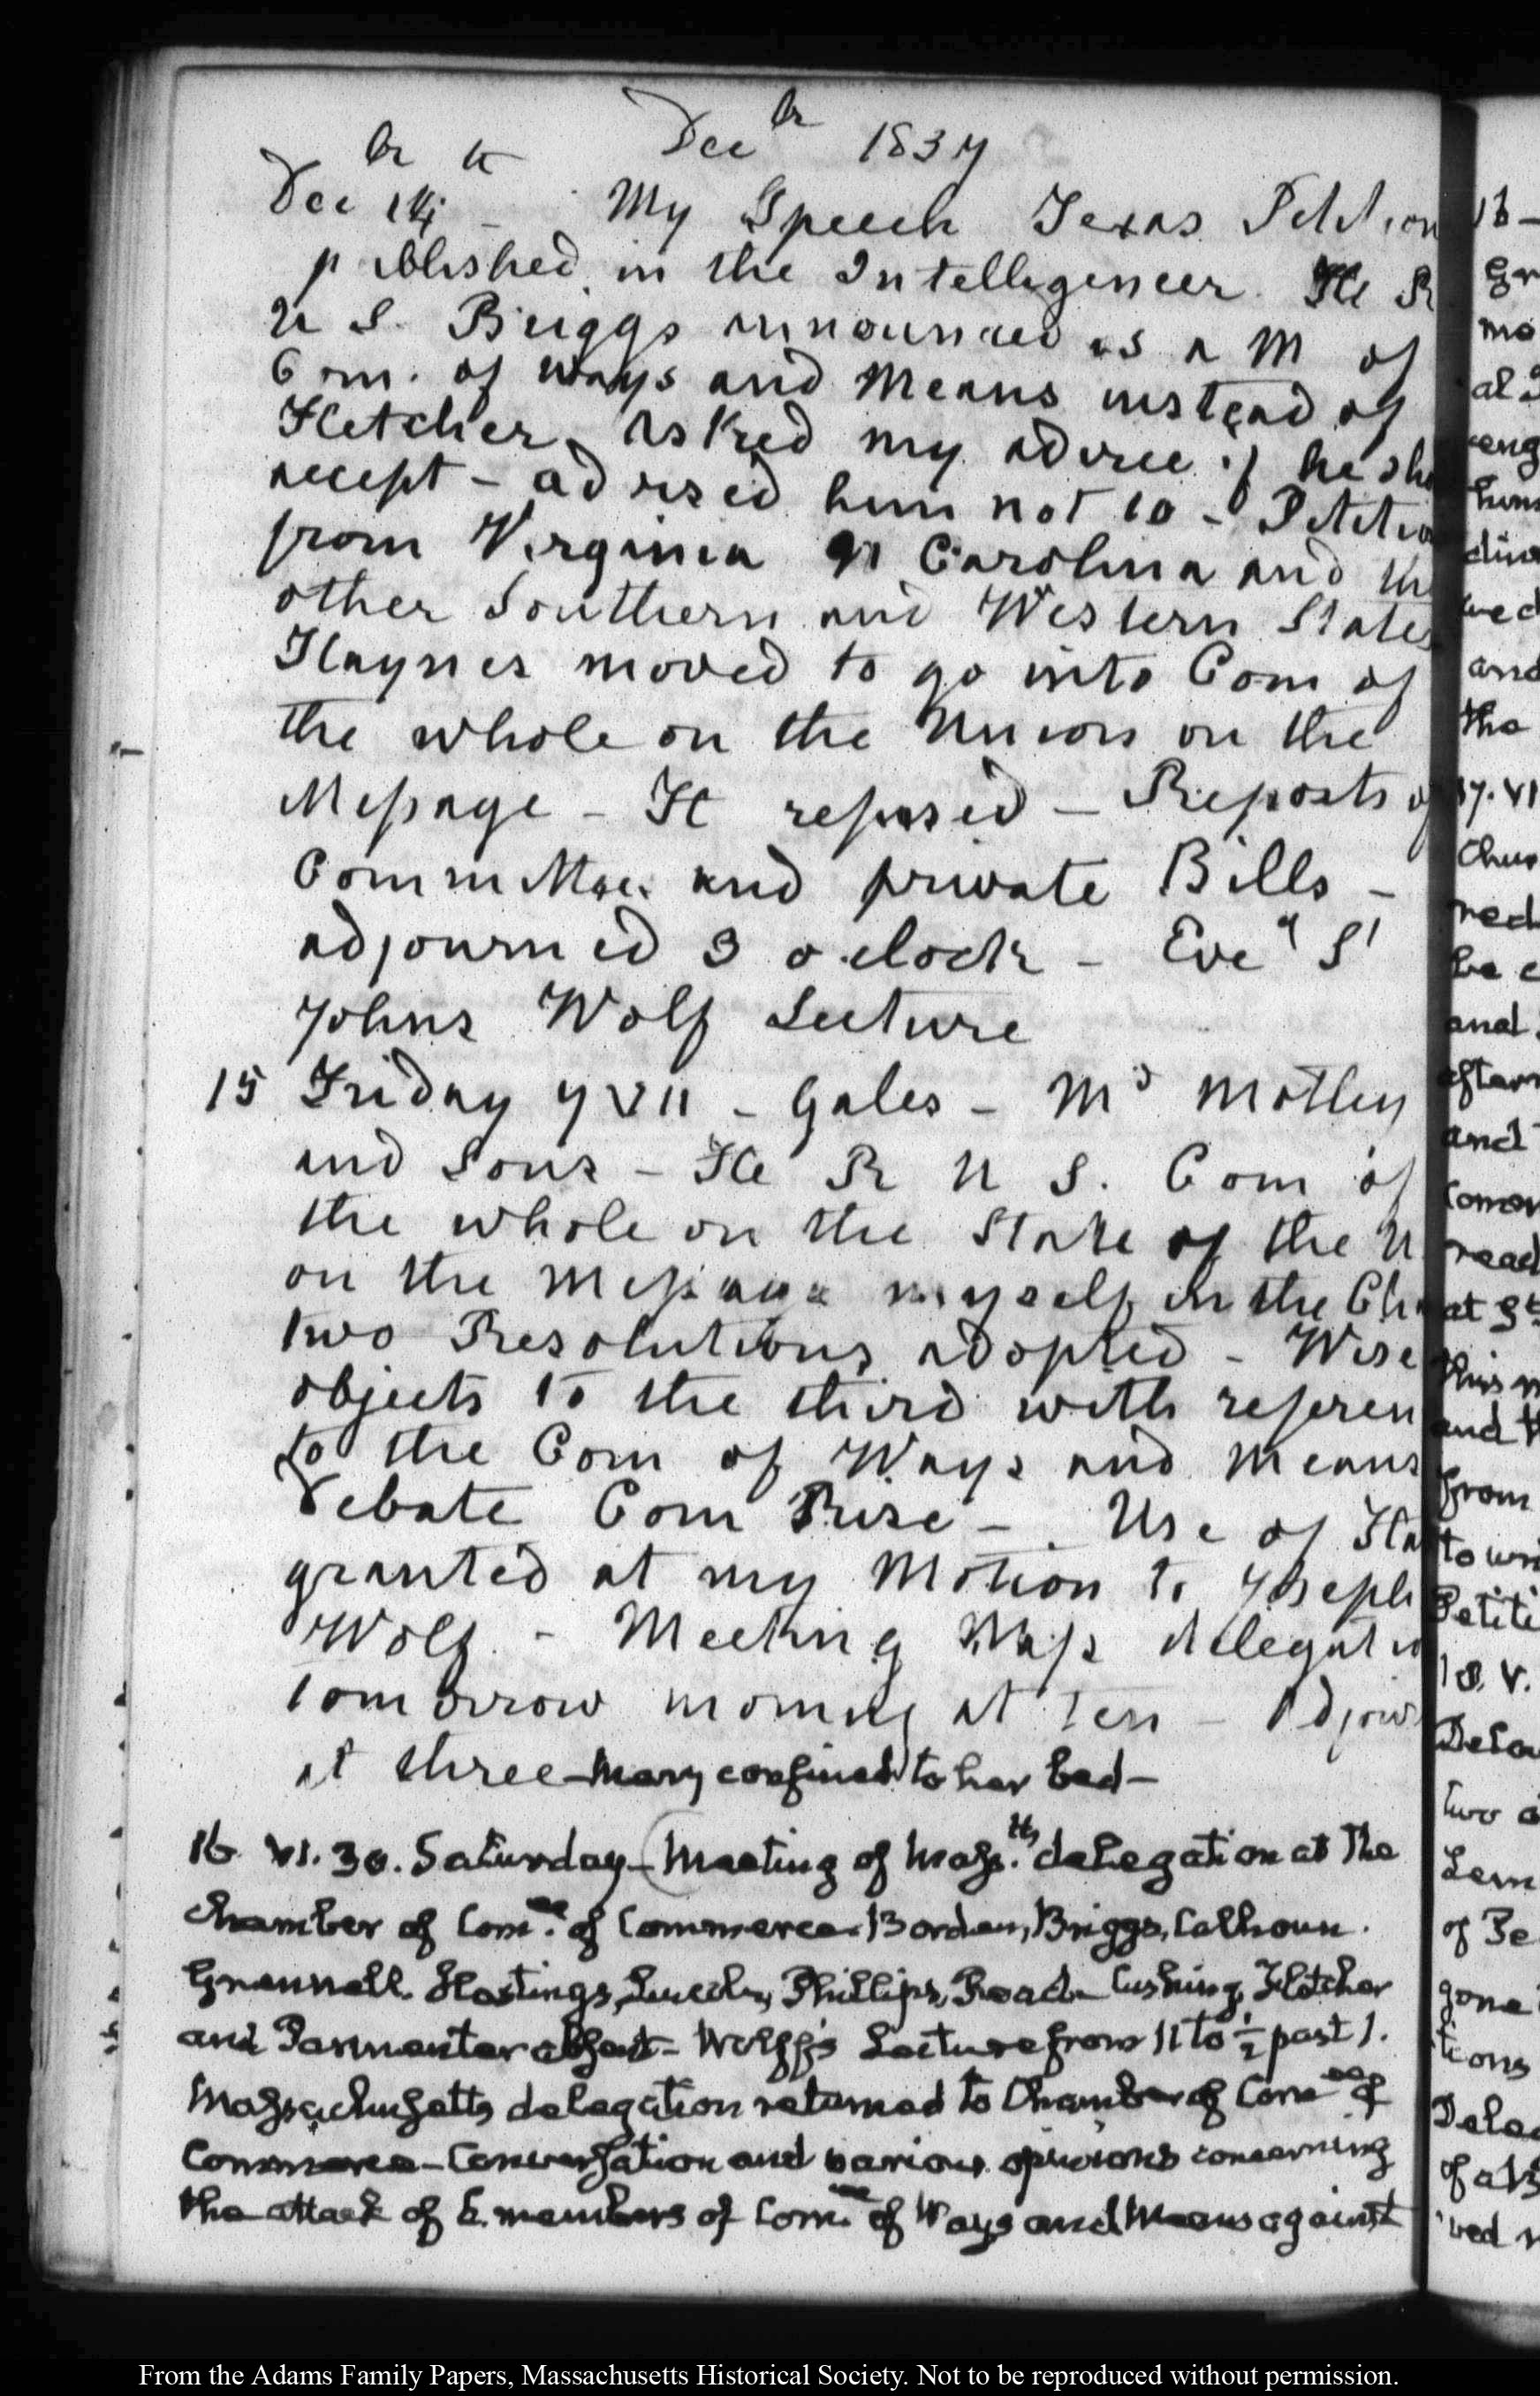 Decbr 1837
Decbr 14th - My Speech Texas Petition
published in the Intelligencer. He R
U S. Briggs announced as a M of
Com. of ways and Means instead of
Fletcher. Asked my advice if he sh
accept - advised him not to - Petitio
from Virginia N Carolina and the
other Southern and Western States
Haynes moved to go into Com of
the whole on the Union on the
Message - It refused - Reports of
Committee and private Bills -
adjourned 3 o clock - Eveg St
Johns Wolf Lecture
15 Friday VII - Gales - Mr Motley
and Sons - He R U S. Com of
the whole on the State of the U
on the Message myself in the Ch
two Resolutions adopted - Wise
objects to the third with referen
to the Com of Ways and Means
Debate Com Rise - Use of Ha
granted at my Motion to Joseph
Wolf. - Meeting Mass delegatio
tomorrow morning at ten - Adjour
at three - Mary confined to her bed -
16 VI. 30. Saturday - Meeting of Mass.tts delegation at the
Chamber of Comee. of Commerce. Borden, Briggs, Calhoun.
Grennell. Hastings, Lincoln, Phillips, Reed - Cushing, Fletcher
and Parmenter absent - Wolff's Lecture from 11 to ½ past 1.
Massachusetts delegation returned to Chamber of Comee of
Commerce - Conversation and various opinions concerning
the attack of 6. members of Comee of Ways and Means against
From the Adams Family Papers, Massachusetts Historical Society. Not to be reproduced without permission.